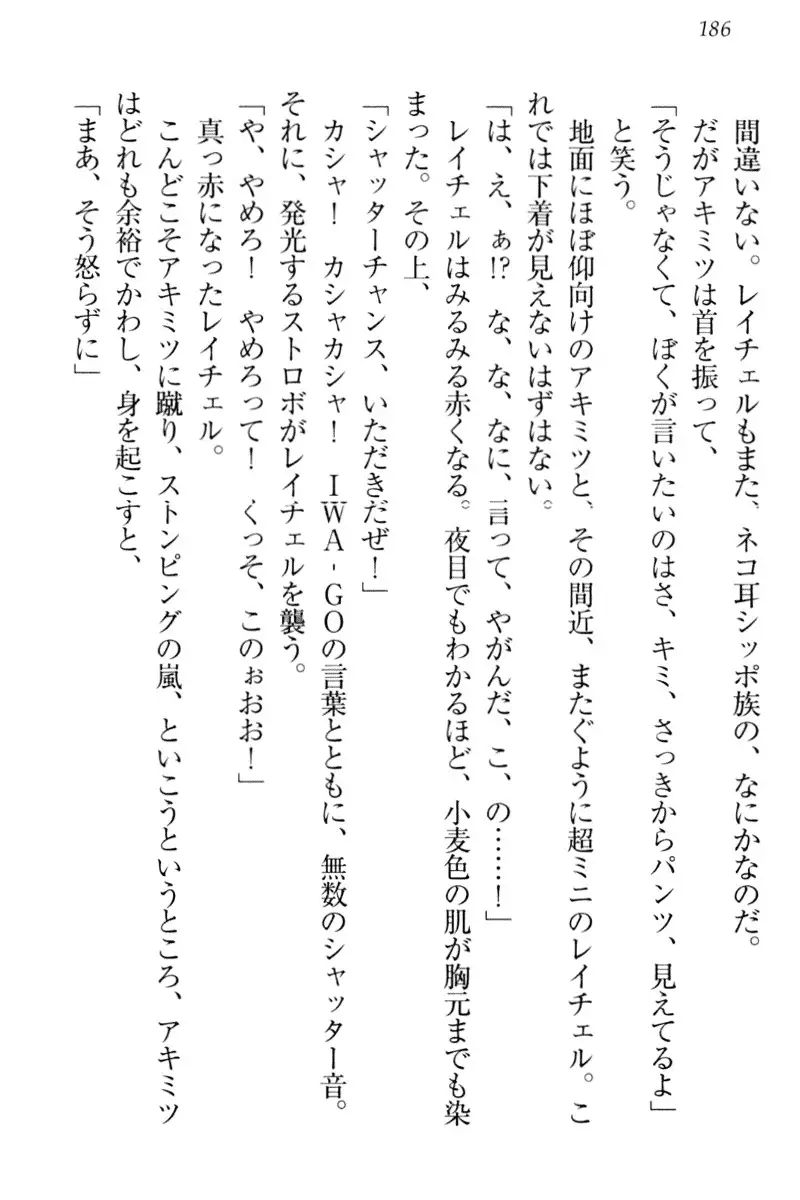 186
間違いない。レイチェルもまた、ネコ耳シッポ族の、なにかなのだ。
だがアキミツは首を振って、
「そうじゃなくて、ぼくが言いたいのはさ、キミ、さっきからパンツ、見えてるよ」
と笑う。
地面にほぼ仰向けのアキミツと、その間近、またぐように超ミニのレイチェル。こ
れでは下着が見えないはずはない。
「は、え、ぁ!?　な、な、なに、言って、やがんだ、こ、の……！」
レイチェルはみるみる赤くなる。夜目でもわかるほど、小麦色の肌が胸元までも染
まった。その上、
「シャッターチャンス、いただきだぜ！」
カシャ！　カシャカシャ！　IWA-GOの言葉とともに、無数のシャッター音。
それに、発光するストロボがレイチェルを襲う。
「や、やめろ！　やめろって！　くっそ、このぉおお！」
真っ赤になったレイチェル。
こんどこそアキミツに蹴り、ストンピングの嵐、といこうというところ、アキミツ
はどれも余裕でかわし、身を起こすと、
「まあ、そう怒らずに」